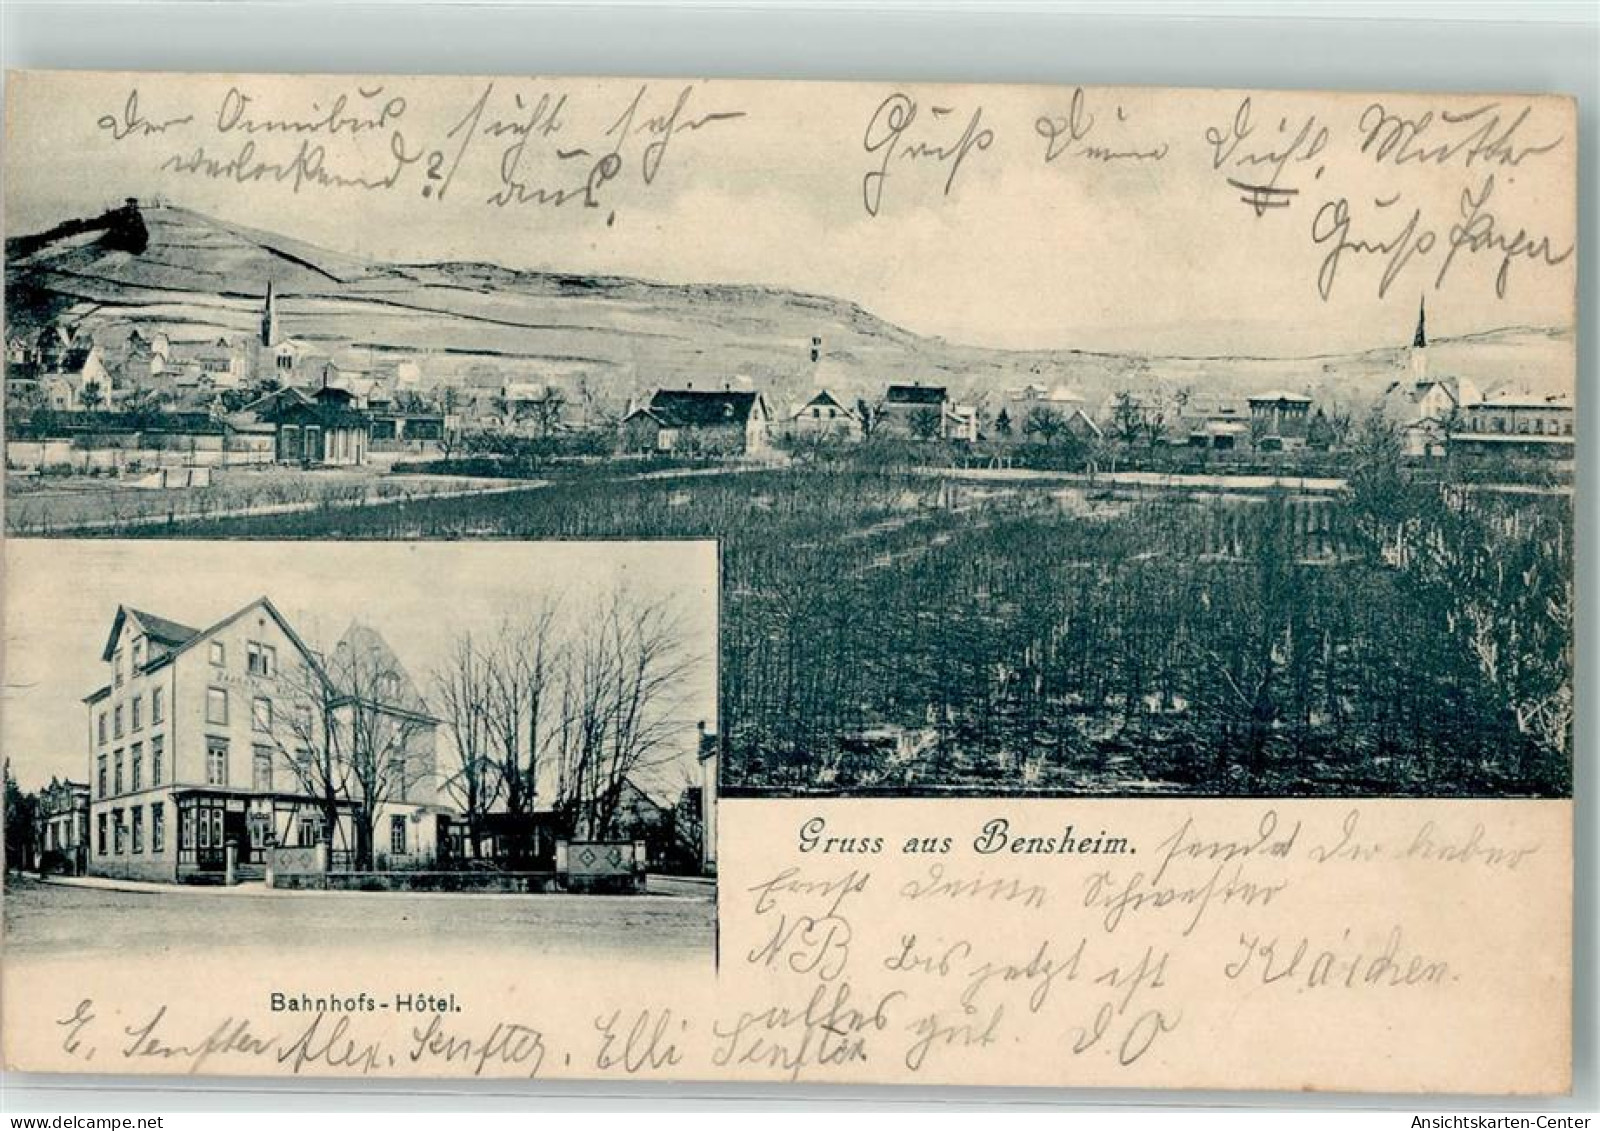 Der Omnibus sieht sehr
verlockend? aus,
Gruß Deine Dich, Mutter
Gruß
Gruss aus Bensheim. sendet Dir lieber
Ernst Deine Schwester
Klärchen.
NB Bis jetzt ist
alles gut. D.O
Bahnhofs-Hôtel.
E. Senfter Alex. Senfter, Elli Senfter
Ansichtskarten-Center